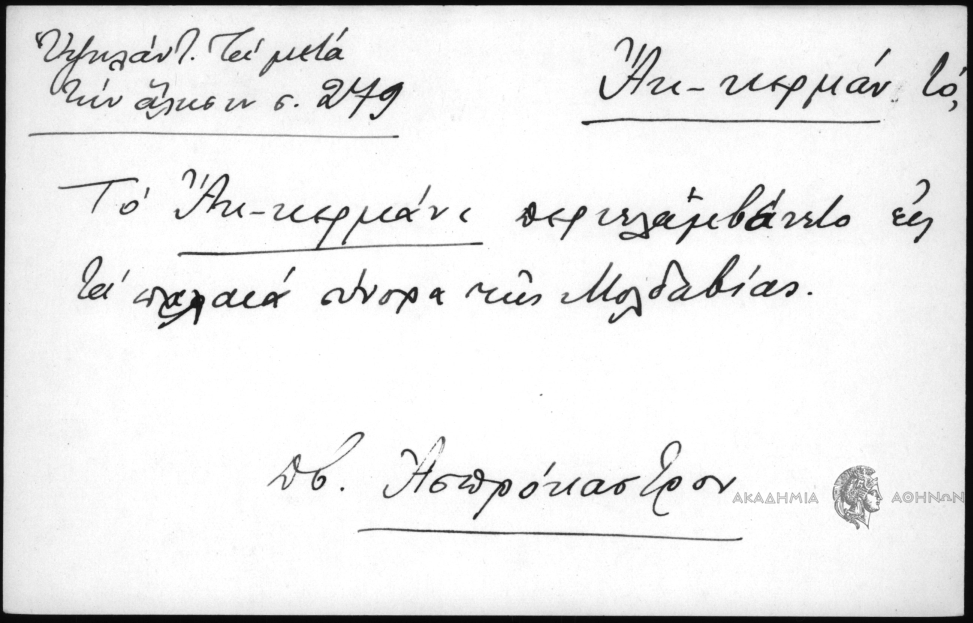 Ὑψηλάντ. Τά μετά
τήν ἅλωσιν σ. 279
Ἄκ-κερμάν. τό,
Τό Ἄκ-κερμάνι περιελαμβάνετο εἰς
τά παλαιά σύνορα τῆς Μολδαβίας.
πβ. Ἀσπρόκαστρον
ΑΚΑΔΗΜΙΑ ΑΘΗΝΩΝ